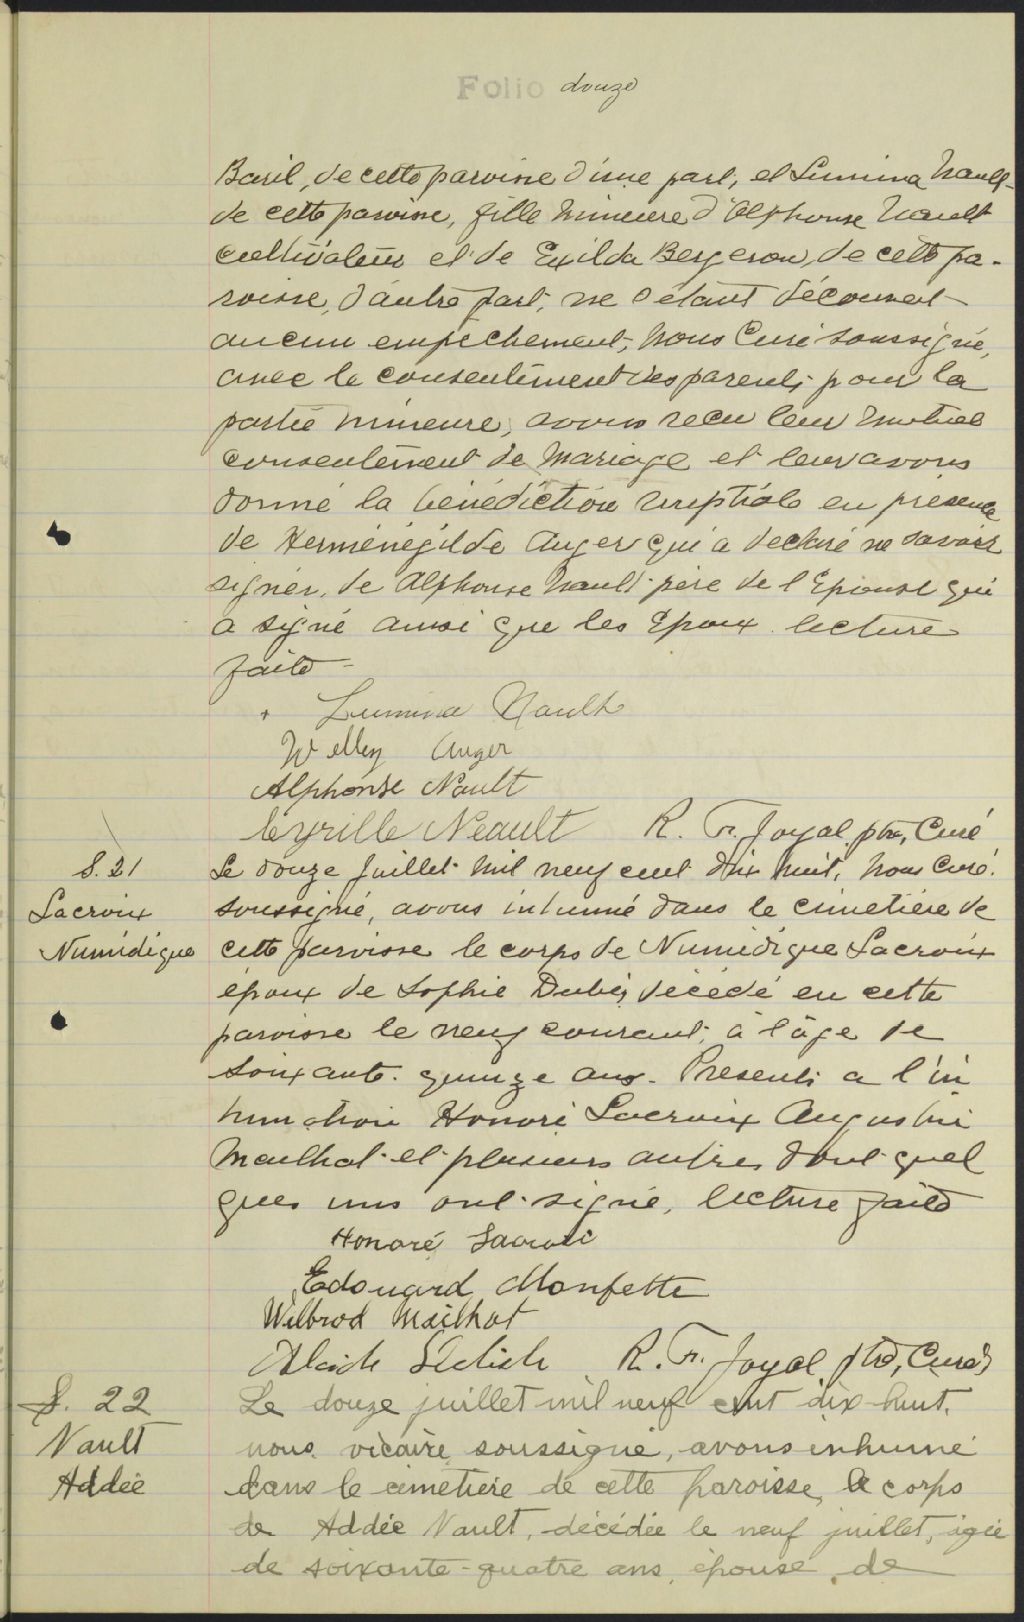 Folio douze
Basil, de cette paroisse d'une part, et Lumina Nault
de cette paroisse, fille mineure d'Alphonse Nault
cultivateur et de Exilda Bergeron, de cette pa-
roisse, d'autre part, ne s'étant découvert
aucun empêchement, nous Curé soussigné,
avec le consentement des parents pour la
partie mineure, avons reçu leur mutuel
consentement de mariage et leur avons
donné la bénédiction nuptiale en présence
de Herménégilde Auger qui a déclaré ne savoir
signer, de Alphonse Nault père de l'Epouse qui
a signé ainsi que les Epoux. lecture
faite -
+ Lumina Nault
Welley Auger
Alphonse Nault
Cyrille Neault R. Fr. Joyal, ptre, Curé
S. 21
Lacroix
Numidique
Le douze juillet mil neuf cent dix huit, nous Curé
soussigné, avons inhumé dans le cimetière de
cette paroisse le corps de Numidique Lacroix
époux de Sophie Dubé, décédé en cette
paroisse le neuf courant, à l'âge de
soixante-quinze ans. Presents a l'in
humation Honoré Lacroix Augustin
Mailhot et plusieurs autres dont quel
ques uns ont signé, lecture faite
Honoré Lacroix
Edouard Monfette
Wilbrod Mailhot
R. Fr. Joyal, ptre, Curé
S. 22
Nault
Addée
Le douze juillet mil neuf cent dix-huit,
nous, vicaire soussigné, avons inhumé
dans le cimetière de cette paroisse, le corps
de Addée Nault, décédée le neuf juillet, agée
de soixante-quatre ans, épouse de